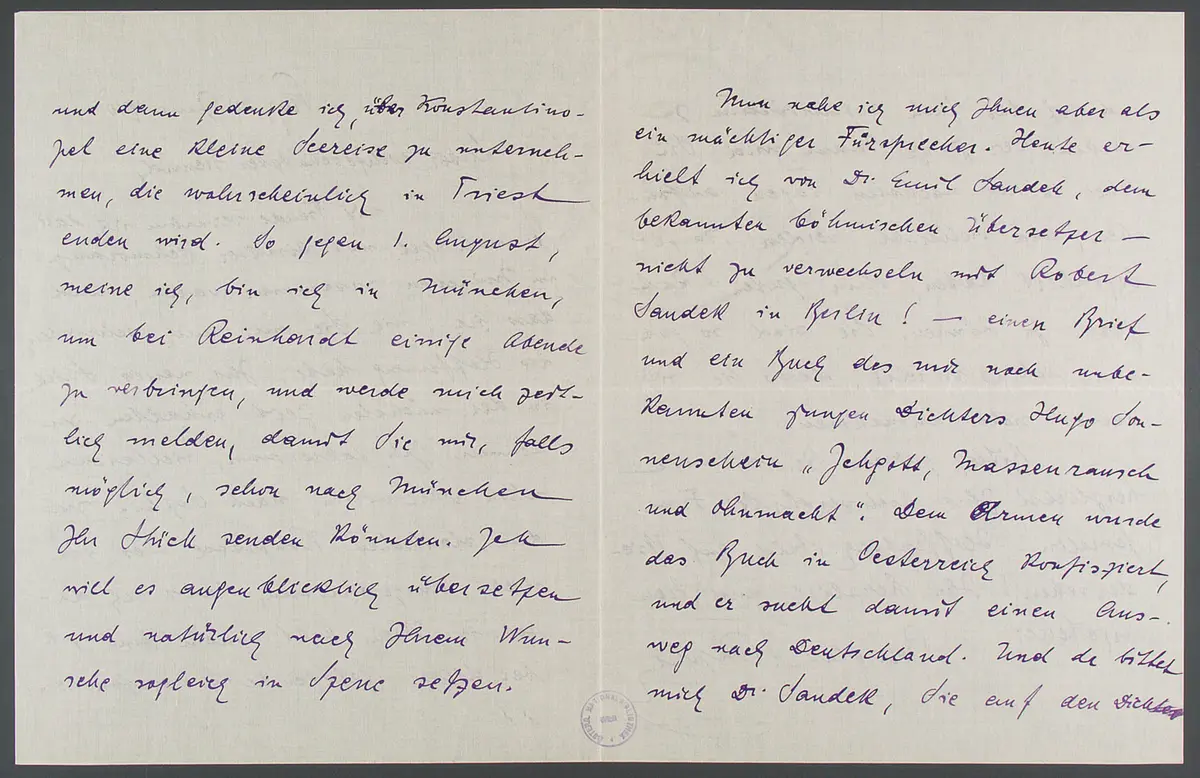 und dann gedenke ich, über Konstantino-
pel eine kleine Seereise zu unterneh-
men, die wahrscheinlich in Triest
enden wird. So gegen 1. August,
meine ich, bin ich in München,
um bei Reinhardt einige Abende
zu verbringen, und werde mich zeit-
lich melden, damit Sie mir, falls
möglich, schon nach München
Ihr Stück senden könnten. Ich
will es augenblicklich übersetzen
und natürlich nach Ihrem Wun-
sche sogleich in Szene setzen.
Nun nahe ich mich Ihnen aber als
ein mächtiger Fürsprecher. Heute er-
hielt ich von Dr. Emil Saudek, dem
bekannten böhmischen Übersetzer —
nicht zu verwechseln mit Robert
Saudek in Berlin! — einen Brief
und ein Buch des mir noch unbe-
kannten jungen Dichters Hugo Son-
nenschein „Ichgott, Massenrausch
und Ohnmacht“. Dem Armen wurde
das Buch in Oesterreich konfisziert,
und er sucht damit einen Aus-
weg nach Deutschland. Und da bittet
mich Dr. Saudek, Sie auf den Dichter